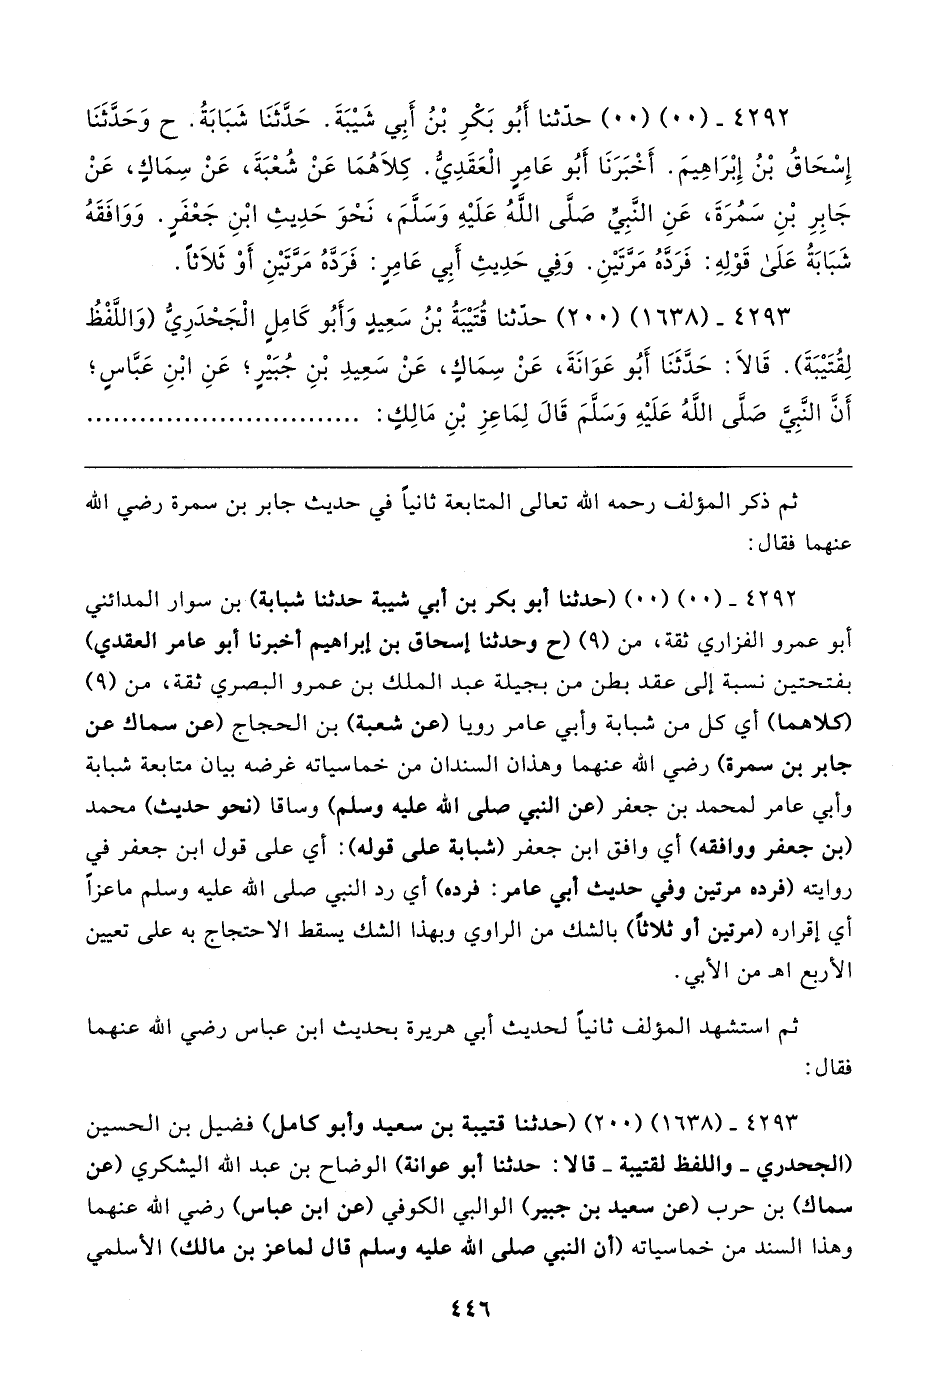 ٤٢٩٢ ـ (٠٠) (٠٠) حدّثنا أَبُو بَكْرِ بْنُ أَبِي شَيْبَةَ. حَدَّثَنَا شَبَابَةُ. ح وَحَدَّثَنَا
إِسْحَاقُ بْنُ إِبْرَاهِيمَ. أَخْبَرَنَا أَبُو عَامِرٍ الْعَقَدِيُّ. كِلاَهُمَا عَنْ شُعْبَةَ، عَنْ سِمَاكٍ، عَنْ
جَابِرِ بْنِ سَمُرَةَ، عَنِ النَّبِيِّ صَلَّى اللَّهُ عَلَيْهِ وَسَلَّمَ، نَحْوَ حَدِيثِ ابْنِ جَعْفَرٍ. وَوَافَقَهُ
شَبَابَةُ عَلَىٰ قَوْلِهِ: فَرَدَّهُ مَرَّتَيْنِ. وَفِي حَدِيثِ أَبِي عَامِرٍ: فَرَدَّهُ مَرَّتَيْنِ أَوْ ثَلاَثاً.
٤٢٩٣ ـ (١٦٣٨) (٢٠٠) حدّثنا قُتَيْبَةُ بْنُ سَعِيدٍ وَأَبُو كَامِلٍ الْجَحْدَرِيُّ (وَاللَّفْظُ
لِقُتَيْبَةَ). قَالاَ: حَدَّثَنَا أَبُو عَوَانَةَ، عَنْ سِمَاكٍ، عَنْ سَعِيدِ بْنِ جُبَيْرٍ؛ عَنِ ابْنِ عَبَّاسٍ؛
أَنَّ النَّبِيَّ صَلَّى اللَّهُ عَلَيْهِ وَسَلَّمَ قَالَ لِمَاعِزِ بْنِ مَالِكٍ: ..............................
ثم ذكر المؤلف رحمه الله تعالى المتابعة ثانياً في حديث جابر بن سمرة رضي الله
عنهما فقال:
٤٢٩٢ ـ (٠٠) (٠٠) (حدثنا أبو بكر بن أبي شيبة حدثنا شبابة) بن سوار المدائني
أبو عمرو الفزاري ثقة، من (٩) (ح وحدثنا إسحاق بن إبراهيم أخبرنا أبو عامر العقدي)
بفتحتين نسبة إلى عقد بطن من بجيلة عبد الملك بن عمرو البصري ثقة، من (٩)
(كلاهما) أي كل من شبابة وأبي عامر رويا (عن شعبة) بن الحجاج (عن سماك عن
جابر بن سمرة) رضي الله عنهما وهذان السندان من خماسياته غرضه بيان متابعة شبابة
وأبي عامر لمحمد بن جعفر (عن النبي صلى الله عليه وسلم) وساقا (نحو حديث) محمد
(بن جعفر ووافقه) أي وافق ابن جعفر (شبابة على قوله): أي على قول ابن جعفر في
روايته (فرده مرتين وفي حديث أبي عامر: فرده) أي رد النبي صلى الله عليه وسلم ماعزاً
أي إقراره (مرتين أو ثلاثاً) بالشك من الراوي وبهذا الشك يسقط الاحتجاج به على تعيين
الأربع اهـ من الأبي.
ثم استشهد المؤلف ثانياً لحديث أبي هريرة بحديث ابن عباس رضي الله عنهما
فقال:
٤٢٩٣ ـ (١٦٣٨) (٢٠٠) (حدثنا قتيبة بن سعيد وأبو كامل) فضيل بن الحسين
(الجحدري ـ واللفظ لقتيبة ـ قالا: حدثنا أبو عوانة) الوضاح بن عبد الله اليشكري (عن
سماك) بن حرب (عن سعيد بن جبير) الوالبي الكوفي (عن ابن عباس) رضي الله عنهما
وهذا السند من خماسياته (أن النبي صلى الله عليه وسلم قال لماعز بن مالك) الأسلمي
٤٤٦